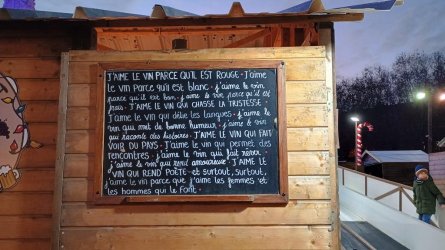 J'AIME LE VIN PARCE QU'IL EST ROUGE. J'aime
le vin parce qu'il est blanc. j'aime le vin
parce qu'il est bon. j'aime le vin parce qu'il est
frais. J'AIME LE VIN QUI CHASSE LA TRISTESSE.
J'aime le vin qui délie les langues. j'aime le
vin qui met de bonne humeur. j'aime le vin
qui raconte des histoires. J'AIME LE VIN QUI FAIT
VOIR DU PAYS. J'aime le vin qui permet des
rencontres. j'aime le vin qui fait rêver.
j'aime le vin qui rend amoureux. J'AIME LE
VIN QUI REND POÈTE. et surtout, surtout,
j'aime le vin parce que j'aime les femmes et
les hommes qui le font.